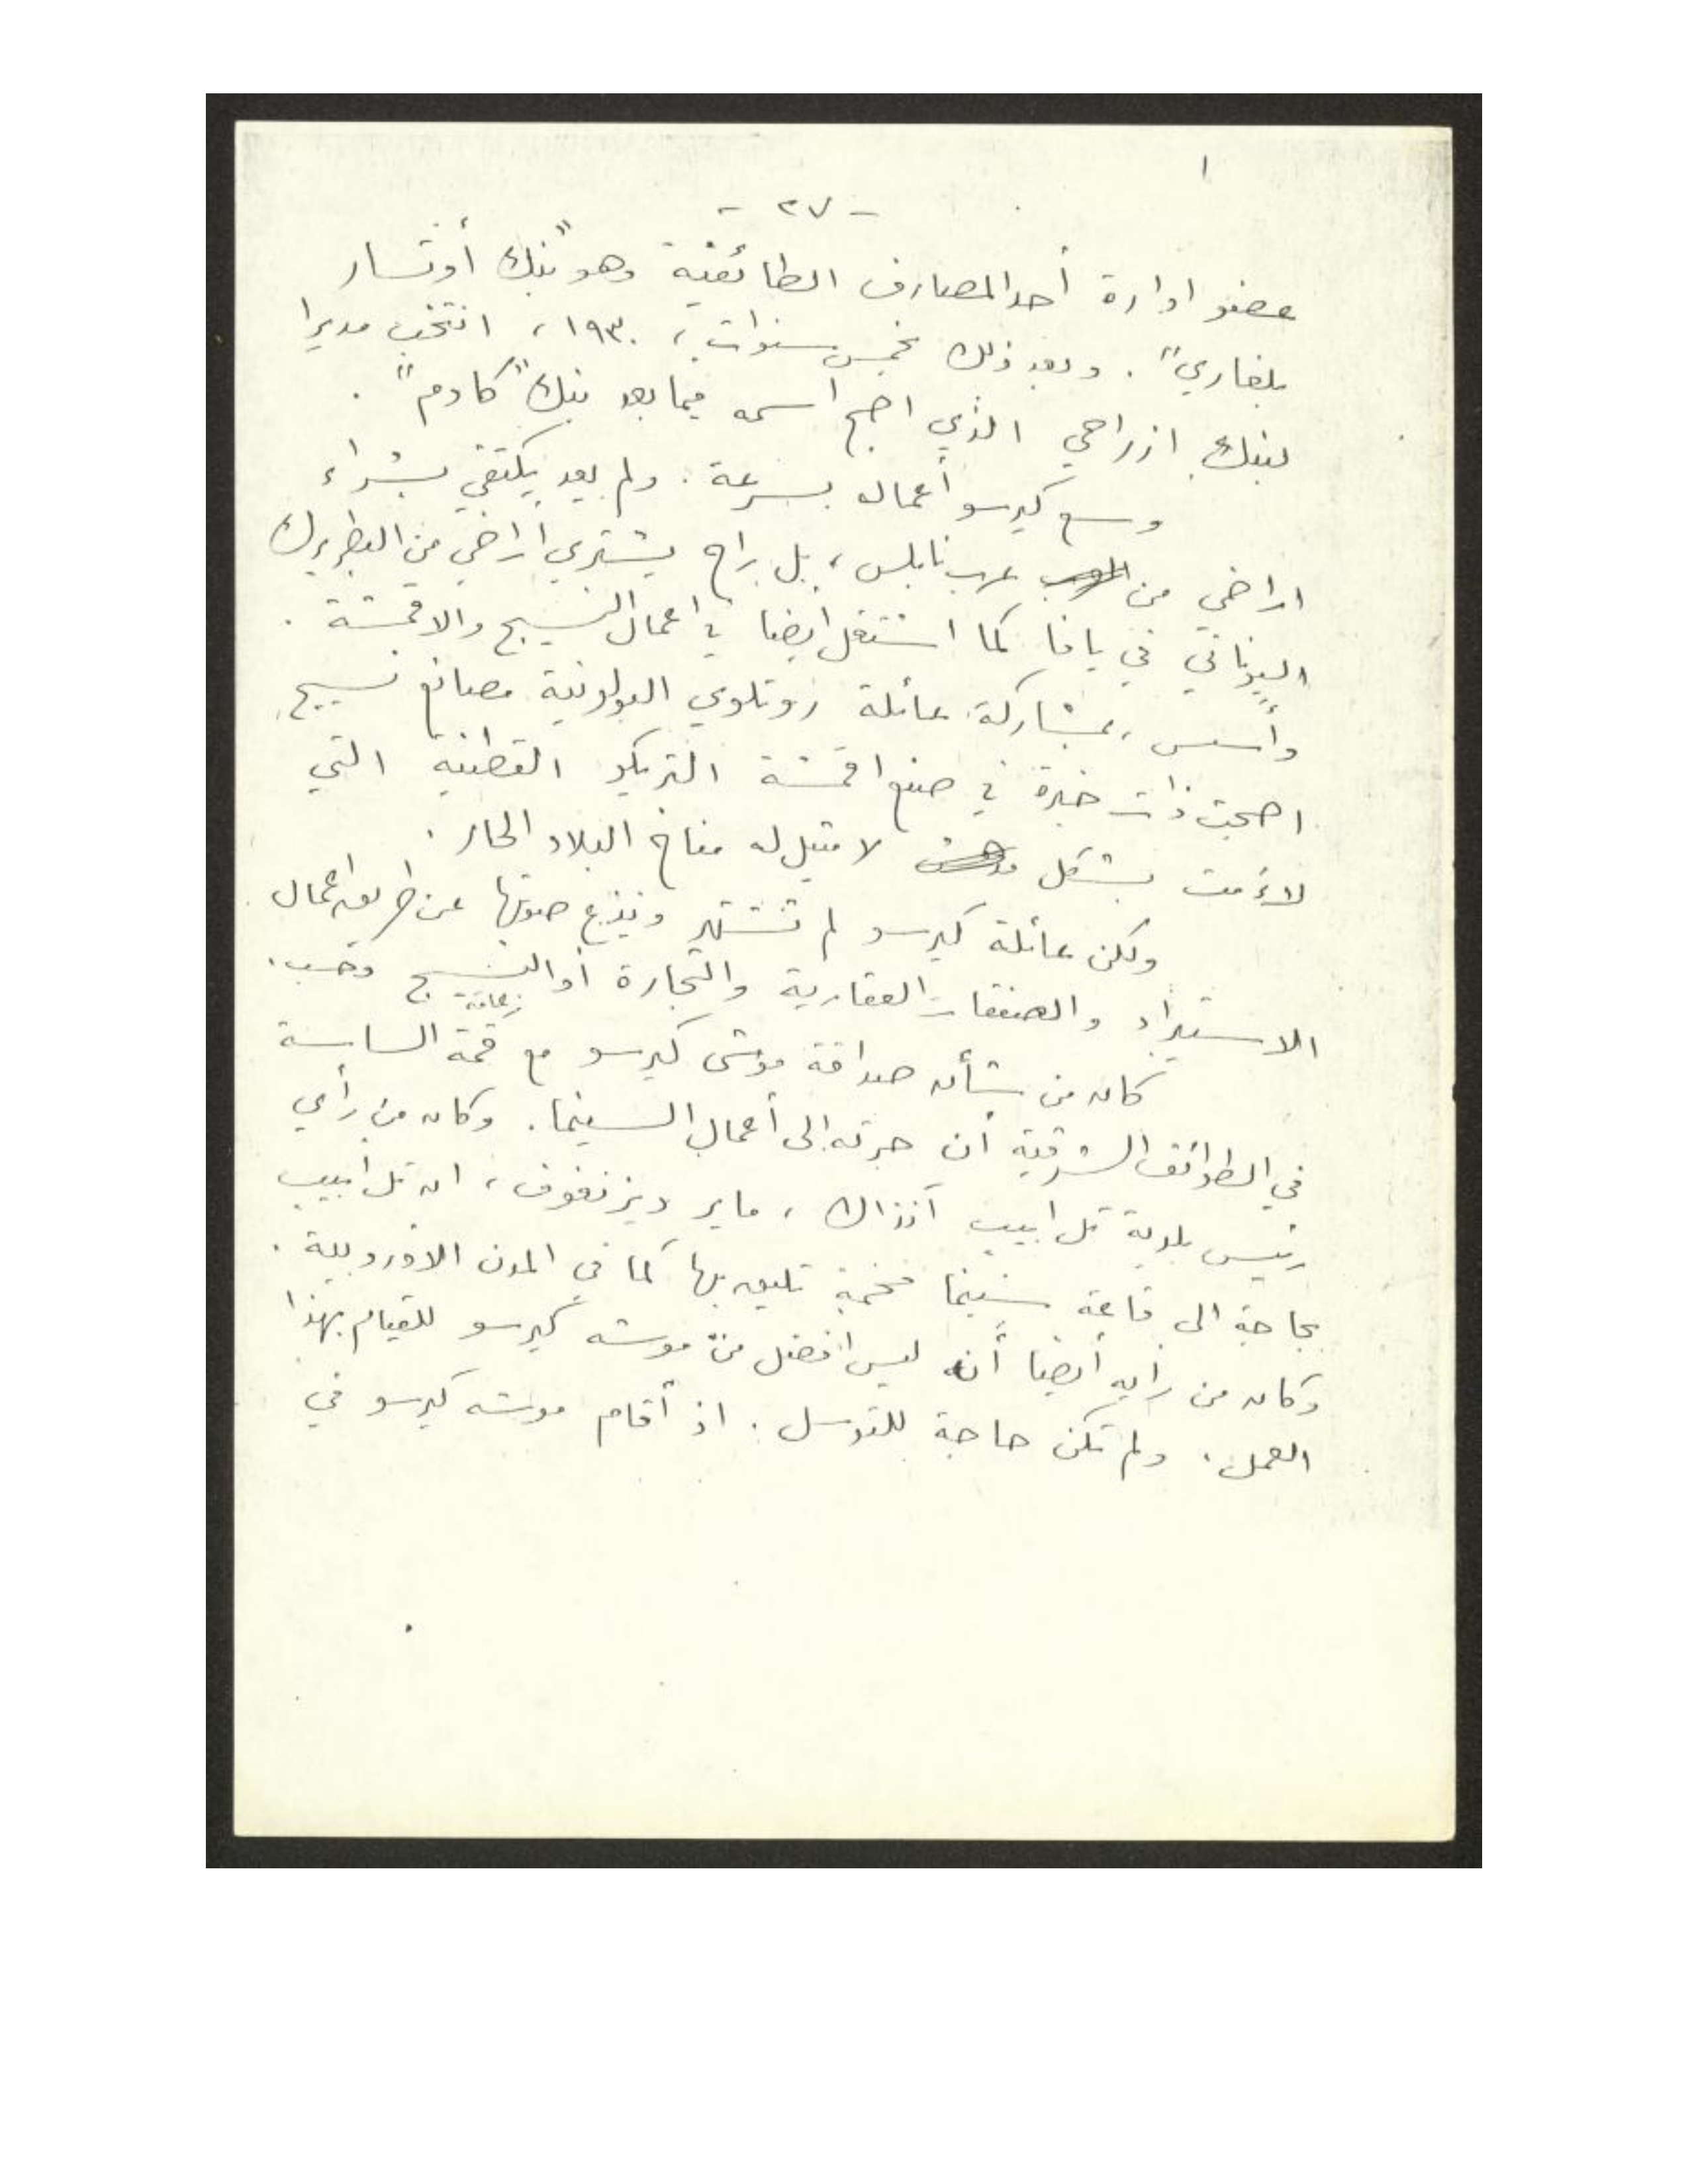 ا
- ٢٧ -
عضو ادارة أحد المصارف الطائفية وهو "بنك أوتسار
بلغاري". وبعد ذلك بخمس سنوات، ١٩٣٠، انتخب مديرا
لبنك ازراحي الذي اصبح اسمه فيما بعد بنك "كادم".
وسع كيرسو أعماله بسرعة. ولم يعد يكتفي بشراء
اراضي من عرب نابلس، بل راح يشتري اراضي من البطريرك
اليوناني في يافا كما اشتغل ايضا في اعمال النسيج والاقمشة.
وأسس، بمشاركة عائلة روتلوي البولونية مصانع نسيج
اصبحت ذات خبرة في صنع اقمشة التريكو القطنية التي
لاءمت بشكل لا مثيل له مناخ البلاد الحار.
ولكن عائلة كيرسو لم تشتهر ويذع صيتها عن طريق اعمال
الاستيراد والصفقات العقارية والتجارة أو النسيج وحسب.
كان من شأن صداقة موشى كيرسو مع قمة الساسة
في الطوائف الشرقية أن جرته الى أعمال السينما. وكان من رأي
رئيس بلدية تل ابيب آنذاك، ماير ديزنغوف، ان تل أبيب
بحاجة الى قاعة سينما فخمة تليق بها كما في المدن الاوروبية.
وكان من رأيه أيضا أنه ليس افضل من موشه كيرسو للقيام بهذا
العمل. ولم تكن حاجة للتوسل. اذ أقام موشه كيرسو في